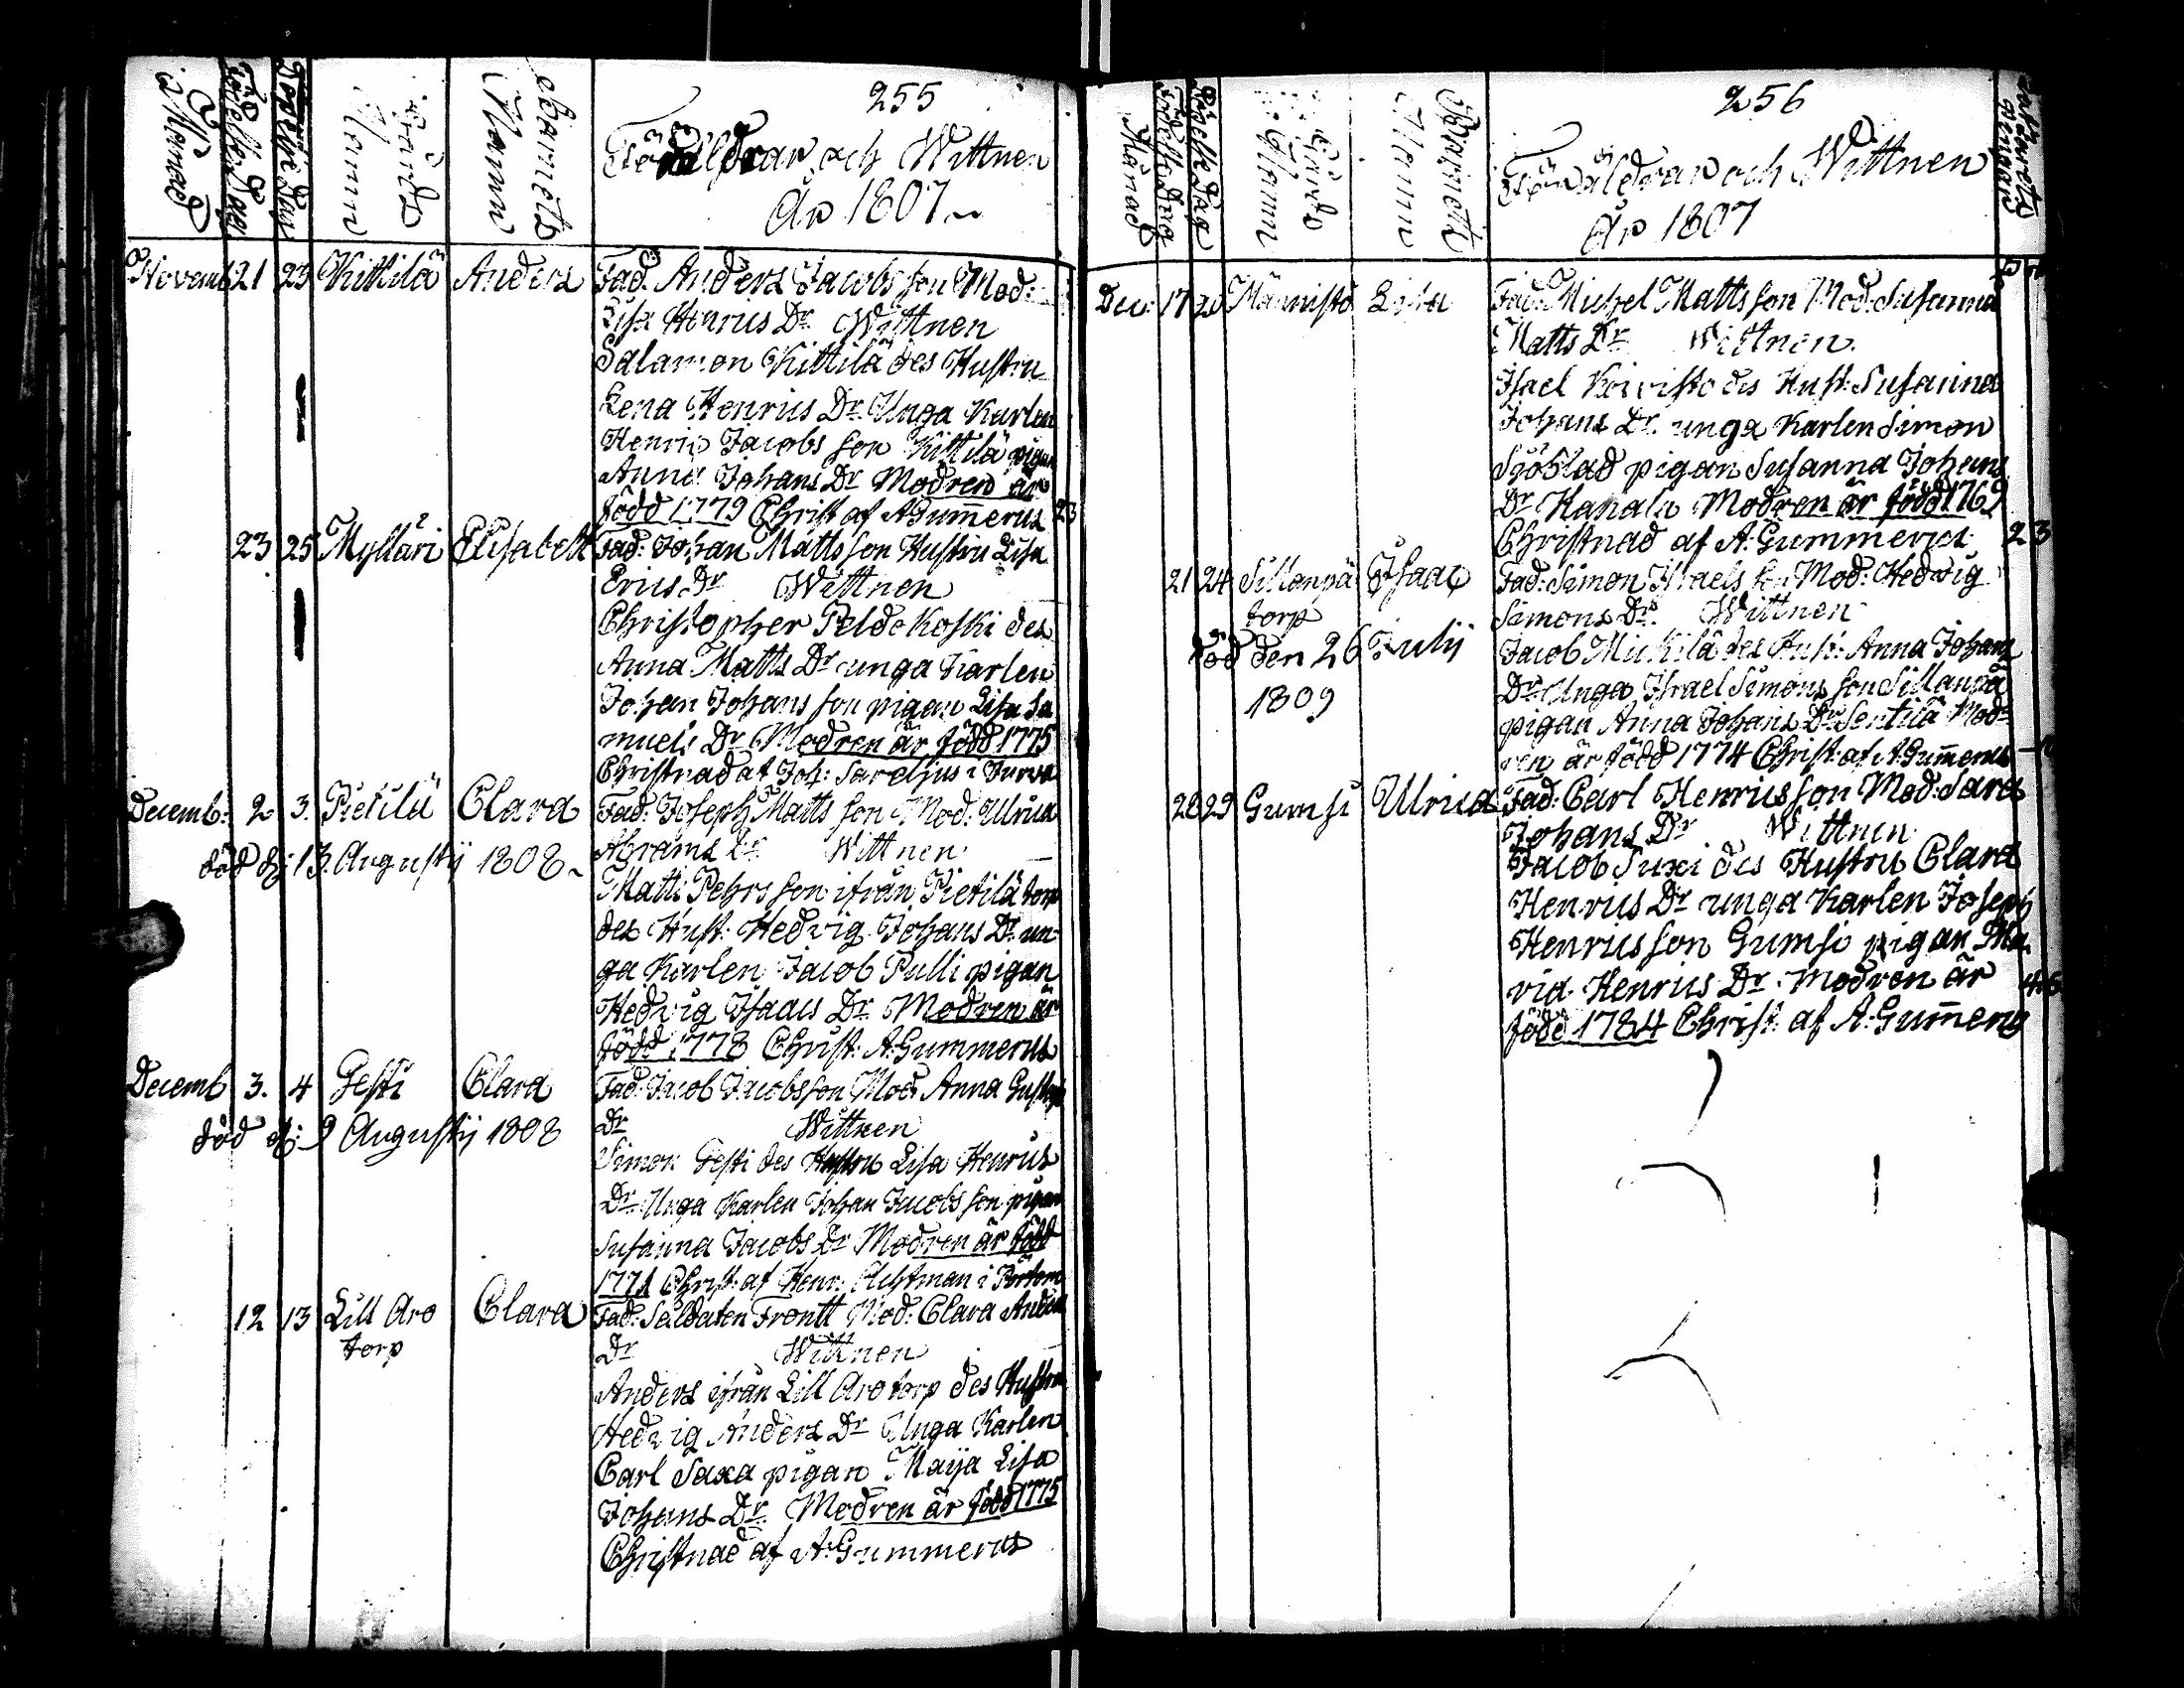 i Månad
Födelse Dag
Döpelse Dag
Gårds Namn
Barnets Namn
255
Föräldrar och Wittnen
År 1807
Novemb 21 23 Kittilä Anders Fad. Anders Jacobs son Mod:
Lisa Henrics Dr. Wittnen
Salamon Kittilä des Hustru
Lena Henrics Dr. Unga Karlen
Henric Jacobs son Kittilä pigan
Anna Johans Dr Modren är
född 1779 Christ af A Gum̄erus 23
23 25 Mylläri Elisabeth Fad: Johan Matts son Hustru Lisa
Erics Dr Wittnen
Christopher Peldokoski des
Anna Matts Dr unga Karlen
Johan Johans son pigan Lisa Sa
muels Dr Modren är född 1775
Christnad af Joh: Sarelius i Jurva
Decemb: 2 3. Pietilä Clara Fad: Joseph Matts son Mod. Ulrica
död d: 13. Augustij 1808 Abrams Dr Wittnen
Matts Pehrs son ifrån Pietilä torp
des Hust. Hedvig Johans Dr. un
ga Karlen Jacob Pulli pigan
Hedvig Isaacs Dr Modren är
född 1778 Christ: A: Gummerus
Decemb 3. 4 Gesti Clara Fad: Jacob Jacobsson Mod Anna Gustafs
död d: 9 Augustij 1808 Dr Wittnen
Simon Gesti des Hustru Lisa Henrics
Dr Unga Karlen Johan Jacobs son pigan
Susanna Jacobs Dr Modren är född
1771 Christ: af Henr: Achtman i Pörtom
12 13 Lill Aro Clara Fad: Soldaten Frontt Mod: Clara Anders
torp Dr Wittnen
Anders ifrån Lill Aro torp des Hustru
Hedvig Anders Dr Unga Karlen
Carl Saxa pigan Maija Lisa
Johans Dr. Modren är född 1775
Christnad af A: Gummerus
Månad
Födelse Dag
Döpelse Dag
Gårds Namn
Barnets Namn
256
Föräldrar och Wittnen
År 1807
Dec: 17 20 Männistö Lisa Fad: Michel Mattsson Mod: Susanna
Matts Dr Wittnen.
Isael Koivisto des Hust: Susanna
Johans Dr. unga Karlen Simon
Sjöblad pigan Susanna Johans
Dr Kanala Modren är född 1769
Christnad af A: Gummerus 23
21 24 Sillanpä Isaac Fad: Simon Israels son Mod: Hedvig
torp Simons Dr. Wittnen
död den 26 Julij Jacob Mickilä des Hust: Anna Johans
1809 Dr. Unga Israel Simons son Sillanpä
pigan Anna Johans Dr Sentilä Mod
ren är född 1774 Christ: af A: Gum̄erus
28 29 Gumsi Ulrica Fad: Carl Henrics son Mod: Sara
Johans Dr Wittnen
Jacob Suxi des Hustru Clara
Henrics Dr unga Karlen Joseph
Henrics son Gumsi pigan Ma
ria Henrics Dr. Modren är
född 1784 Christ: af A: Gum̄erus